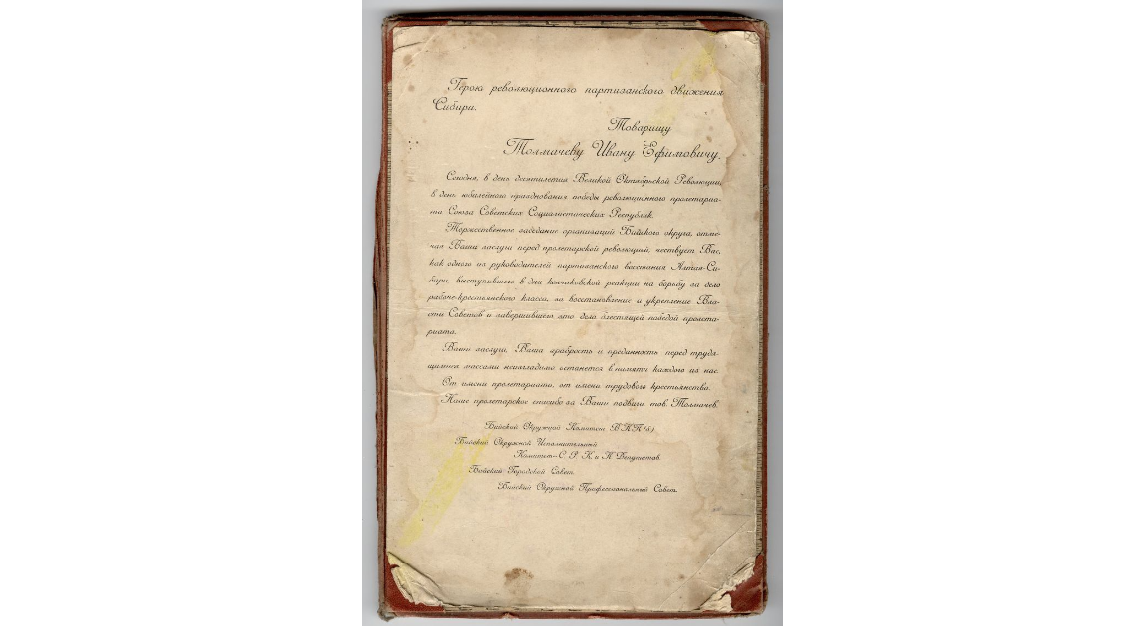 Герою революционного партизанского движения
Сибири.
Товарищу
Толмачеву Ивану Ефимовичу.
Сегодня, в день десятилетия Великой Октябрьской Революции,
в день юбилейного празднования победы революционного пролетариа-
та Союза Советских Социалистических Республик.
Торжественное заседание организаций Бийского округа, отме-
чая Ваши заслуги перед пролетарской революцией, чествует Вас,
как одного из руководителей партизанского восстания Алтая-Си-
бири, выступившего в дни колчаковской реакции на борьбу за дело
рабоче-крестьянского класса, за восстановление и укрепление Вла-
сти Советов и завершившего это дело блестящей победой пролета-
риата.
Ваши заслуги, Ваша храбрость и преданность перед трудя-
щимися массами неизгладимо останется в памяти каждого из нас.
От имени пролетариата, от имени трудового крестьянства.
Наше пролетарское спасибо за Ваши подвиги тов. Толмачев.
Бийский Окружной Комитет ВКП(б)
Бийский Окружной Исполнительный
Комитет—С. Р. К. и К Депутатов.
Бийский Городской Совет.
Бийский Окружной Профессиональный Совет.